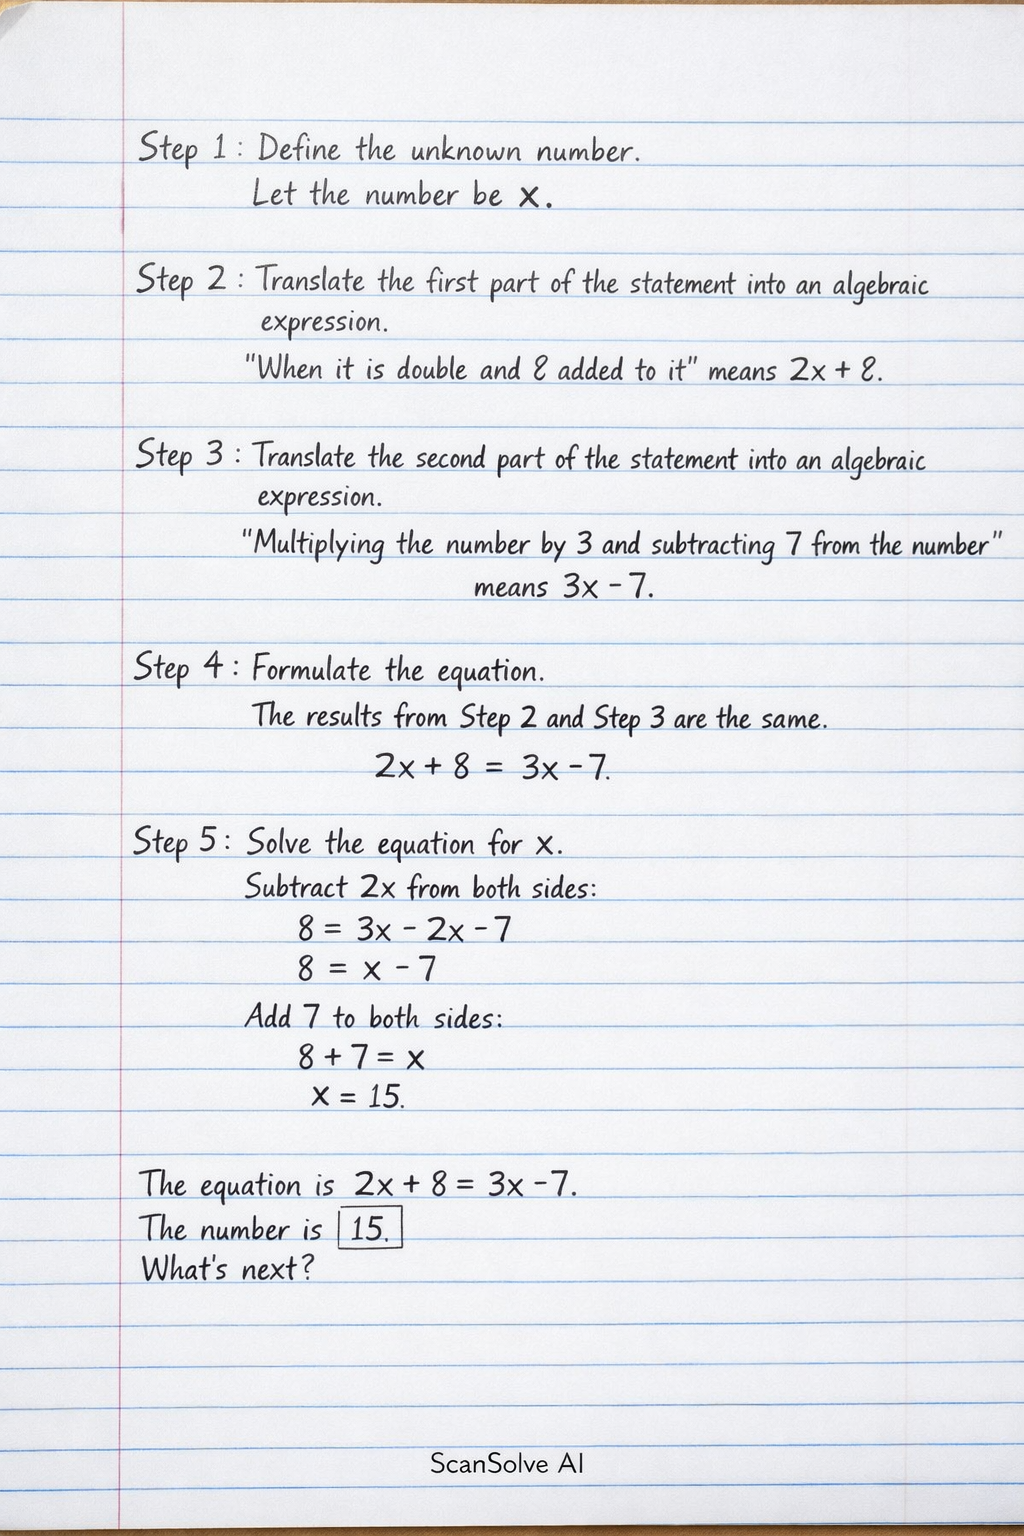 Step 1 : Define the unknown number.
Let the number be x.
Step 2 : Translate the first part of the statement into an algebraic
expression.
"When it is double and 8 added to it" means 2x + 8.
Step 3 : Translate the second part of the statement into an algebraic
expression.
"Multiplying the number by 3 and subtracting 7 from the number"
means 3x - 7.
Step 4 : Formulate the equation.
The results from Step 2 and Step 3 are the same.
2x + 8 = 3x - 7.
Step 5 : Solve the equation for x.
Subtract 2x from both sides:
8 = 3x - 2x - 7
8 = x - 7
Add 7 to both sides:
8 + 7 = x
x = 15.
The equation is 2x + 8 = 3x - 7.
The number is 15.
What's next?
ScanSolve AI